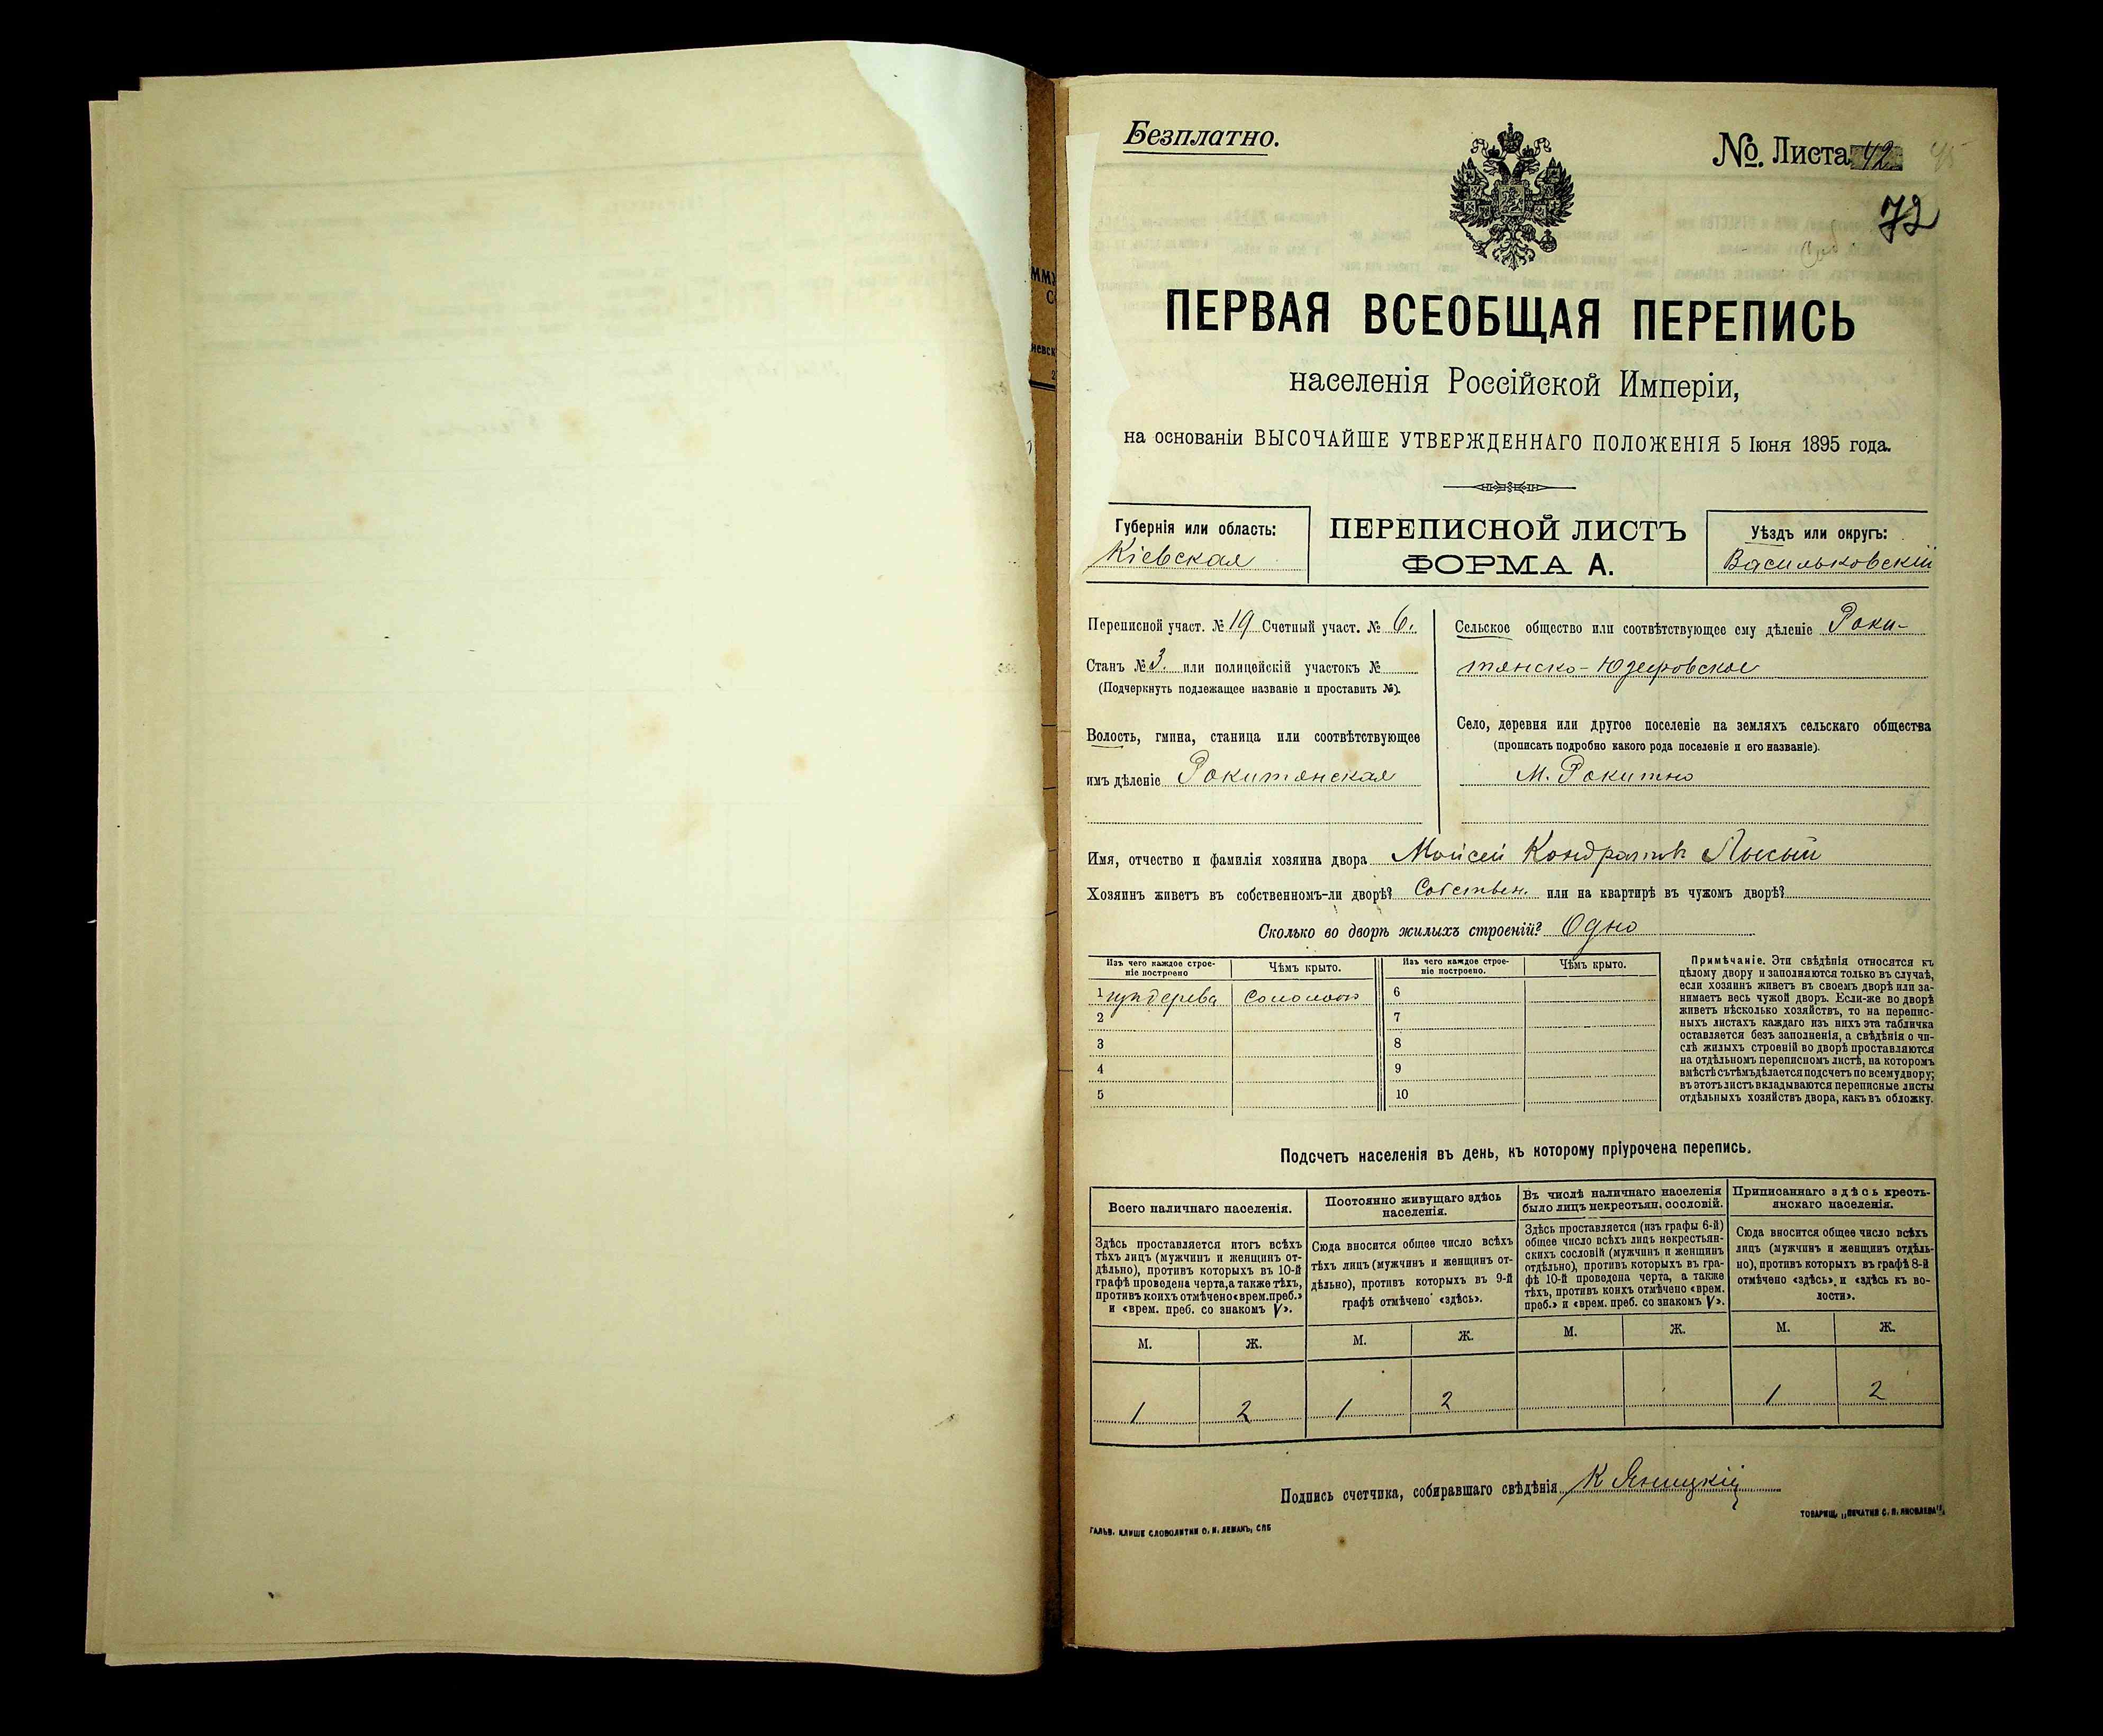 Безплатно.
№ Листа 42
72
ПЕРВАЯ ВСЕОБЩАЯ ПЕРЕПИСЬ
населенія Россійской Имперіи,
на основаніи ВЫСОЧАЙШЕ УТВЕРЖДЕННАГО ПОЛОЖЕНІЯ 5 Іюня 1895 года.
Губернія или область:
Кіевская
ПЕРЕПИСНОЙ ЛИСТЪ
ФОРМА А.
Уѣздъ или округъ:
Васильковскій
Переписной участ. № 19 Счетный участ. № 6.
Станъ № 3. или полицейскій участокъ №
(Подчеркнуть подлежащее названіе и проставить №).
Волость, гмина, станица или соотвѣтствующее
имъ дѣленіе Рокитянская
Сельское общество или соотвѣтствующее ему дѣленіе Роки-
тянско-Юзефовское
Село, деревня или другое поселеніе на земляхъ сельскаго общества
(прописать подробно какого рода поселеніе и его названіе).
М. Рокитно
Имя, отчество и фамилія хозяина двора Мойсей Кондратів Лысый
Хозяинъ живетъ въ собственномъ-ли дворѣ? Собствен. или на квартирѣ въ чужомъ дворѣ?
Сколько во дворѣ жилыхъ строеній? Одно
Изъ чего каждое строе-
ніе построено
Чѣмъ крыто.
Изъ чего каждое строе-
ніе построено.
Чѣмъ крыто.
1 изъ дерева Соломою
2
3
4
5
6
7
8
9
10
Примѣчаніе. Эти свѣдѣнія относятся къ
цѣлому двору и заполняются только въ случаѣ,
если хозяинъ живетъ въ своемъ дворѣ или за-
нимаетъ весь чужой дворъ. Если-же во дворѣ
живетъ нѣсколько хозяйствъ, то на перепис-
ныхъ листахъ каждаго изъ нихъ эта табличка
оставляется безъ заполненія, а свѣдѣнія о чи-
слѣ жилыхъ строеній во дворѣ проставляются
на отдѣльномъ переписномъ листѣ, на которомъ
вмѣстѣ съ тѣмъ дѣлается подсчетъ по всему двору;
въ этотъ листъ вкладываются переписные листы
отдѣльныхъ хозяйствъ двора, какъ въ обложку.
Подсчетъ населенія въ день, къ которому пріурочена перепись.
Всего наличнаго населенія.
Здѣсь проставляется итогъ всѣхъ
тѣхъ лицъ (мужчинъ и женщинъ от-
дѣльно), противъ которыхъ въ 10-й
графѣ проведена черта, а также тѣхъ,
противъ коихъ отмѣчено «врем. преб.»
и «врем. преб. со знакомъ V».
Постоянно живущаго здѣсь
населенія.
Сюда вносится общее число всѣхъ
тѣхъ лицъ (мужчинъ и женщинъ от-
дѣльно), противъ которыхъ въ 9-й
графѣ отмѣчено «здѣсь».
Въ числѣ наличнаго населенія
было лицъ некрестьян. сословій.
Здѣсь проставляется (изъ графы 6-й)
общее число всѣхъ лицъ некрестьян-
скихъ сословій (мужчинъ и женщинъ
отдѣльно), противъ которыхъ въ гра-
фѣ 10-й проведена черта, а также
тѣхъ, противъ коихъ отмѣчено «врем.
преб.» и «врем. преб. со знакомъ V».
Приписаннаго здѣсь кресть-
янскаго населенія.
Сюда вносится общее число всѣхъ
лицъ (мужчинъ и женщинъ отдѣль-
но), противъ которыхъ въ графѣ 8-й
отмѣчено «здѣсь» и «здѣсь къ во-
лости».
М. Ж. М. Ж. М. Ж. М. Ж.
1 2 1 2 1 2
Подпись счетчика, собиравшаго свѣдѣнія К Яницкій
ГАЛЬВ. КЛИШЕ СЛОВОЛИТНИ О. И. ЛЕМАНЪ, СПБ
ТОВАРИЩ. „ПЕЧАТНЯ С. П. ЯКОВЛЕВА“.